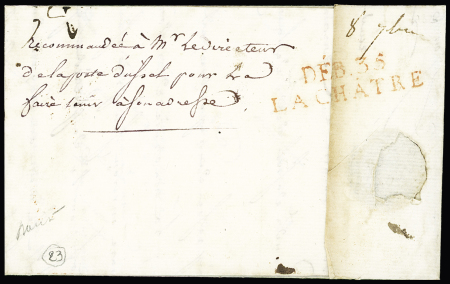 8 7bre
Recommandée à Mr le directeur
de la poste d'ussel pour la
faire tenir a son adresse
DÉB. 35
LA CHÂTRE
23